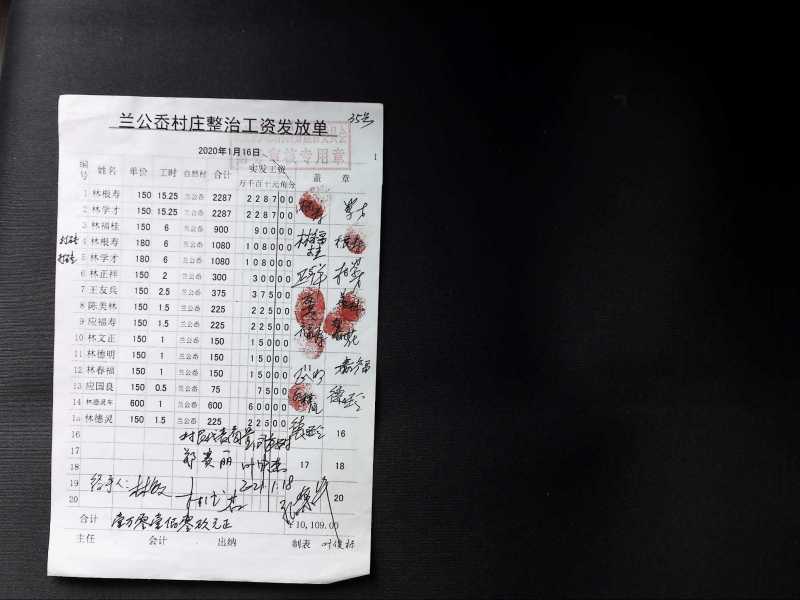 35号
兰公岙村庄整治工资发放单
2020年1月16日
专用章
编号 姓名 单价 工时 自然村 合计 实发工资 盖 章
万千百十元角分
1 林根寿 150 15.25 兰公岙 2287 228700
2 林学才 150 15.25 兰公岙 2287 228700
3 林福桂 150 6 兰公岙 900 90000
4 林根寿 180 6 兰公岙 1080 108000
5 林学才 180 6 兰公岙 1080 108000
6 林正祥 150 2 兰公岙 300 30000
7 王友兵 150 2.5 兰公岙 375 37500
8 陈美林 150 1.5 兰公岙 225 22500
9 应福寿 150 1.5 兰公岙 225 22500
10 林文正 150 1 兰公岙 150 15000
11 林德明 150 1 兰公岙 150 15000
12 林春福 150 1 兰公岙 150 15000
13 应国良 150 0.5 兰公岙 75 7500
14 林德灵车 600 1 兰公岙 600 60000
15 林德灵 150 1.5 兰公岙 225 22500
16 村民代表 16
17 郑贵丽 17
18 18
19 经手人: 2021.1.18
20 20
合计 壹万零壹佰零玖元正 ¥10,109.00
主任 会计 出纳 制表